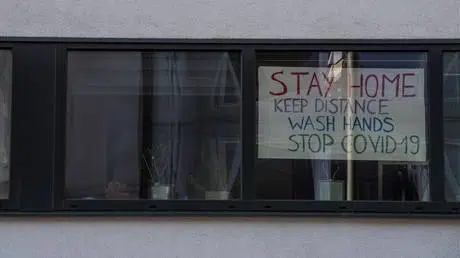 STAY HOME
KEEP DISTANCE
WASH HANDS
STOP COVID-19